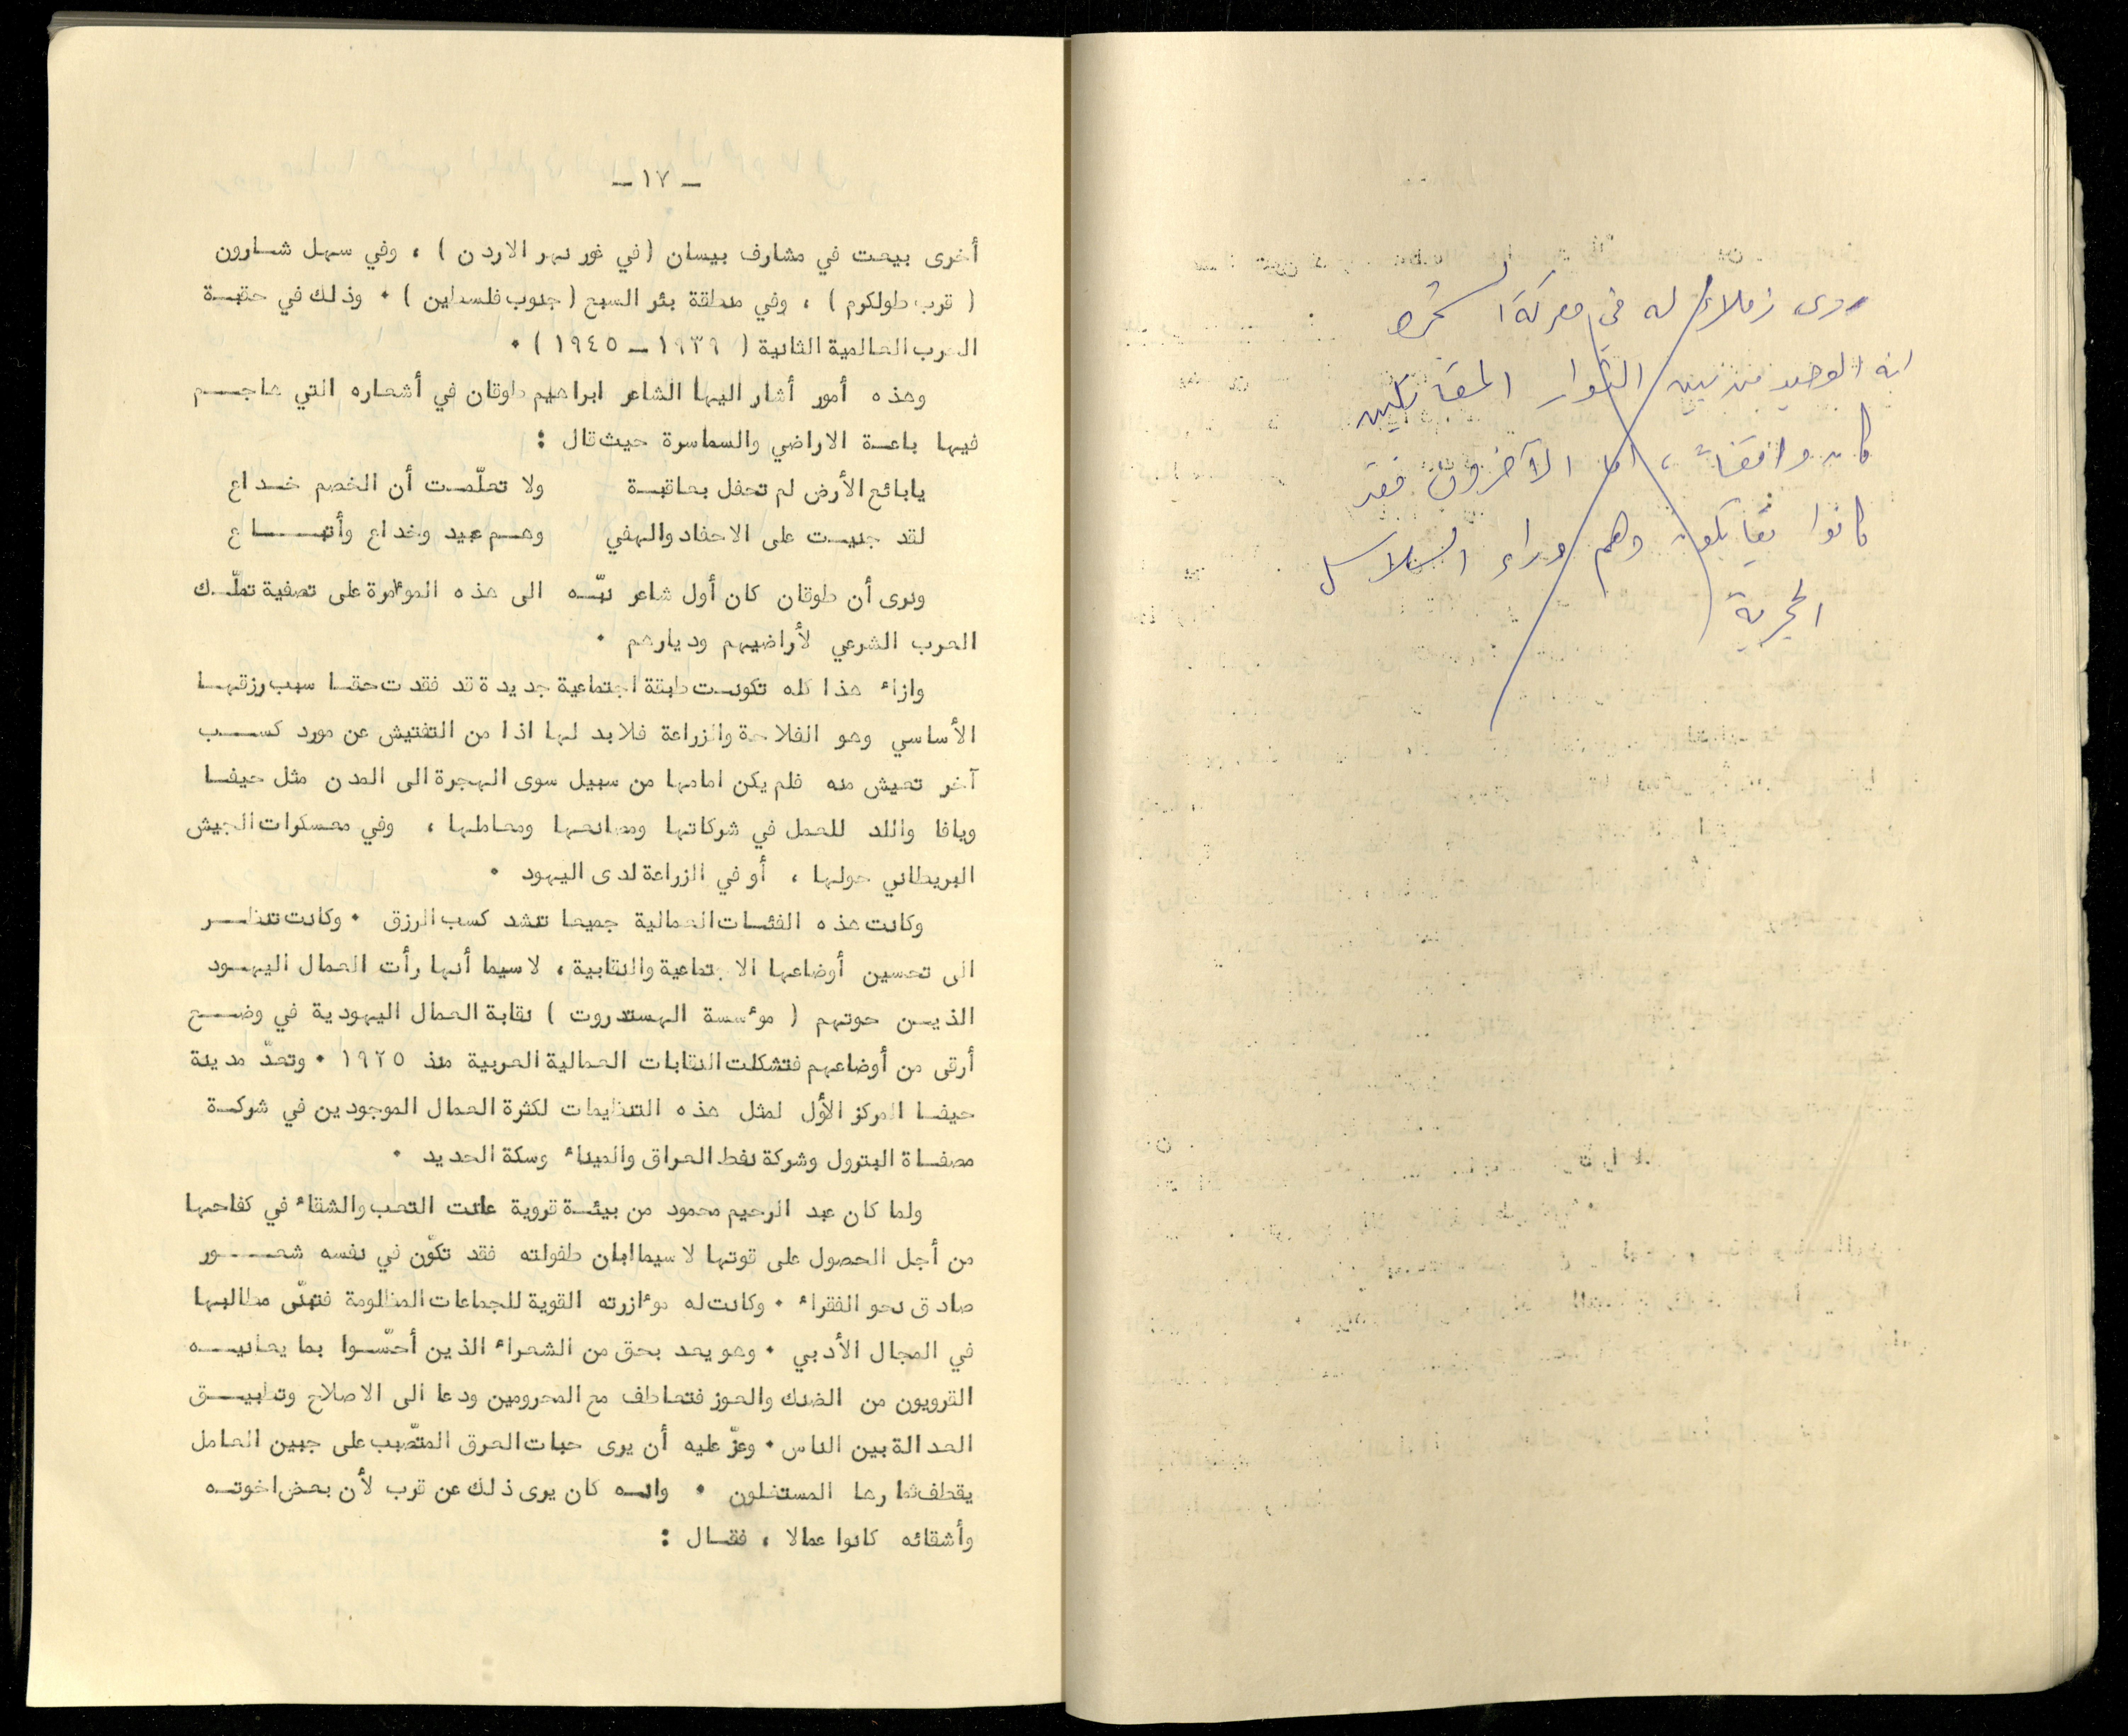 روى زملاء له في معركة الشجرة
انه الوحيد من بين الثوار المقاتلين
كان واقفاً ، اما الآخرون فقد
كانوا يقاتلون وهم وراء السلاسل
الحجرية
- ١٧ -
أخرى بيعت في مشارف بيسان (في غور نهر الاردن ) ، وفي سهل شارون
( قرب طولكرم ) ، وفي منطقة بئر السبع ( جنوب فلسطين ) ٠ وذلك في حقبة
الحرب العالمية الثانية ( ١٩٣٩ - ١٩٤٥ ) ٠
وهذه أمور أشار اليها الشاعر ابراهيم طوقان في أشعاره التي هاجم
فيها باعة الاراضي والسماسرة حيث قال :
يابائع الأرض لم تحفل بعاقبة ولا تعلّمت أن الخصم خداع
لقد جنيت على الاحفاد والهفي وهم عبيد وخداع وأتباع
ونرى أن طوقان كان أول شاعر نبّه الى هذه المؤامرة على تصفية تملّك
العرب الشرعي لأراضيهم وديارهم ٠
وازاء هذا كله تكونت طبقة اجتماعية جديدة قد فقدت حقا سبب رزقها
الأساسي وهو الفلاحة والزراعة فلابد لها اذا من التفتيش عن مورد كسب
آخر تعيش منه فلم يكن امامها من سبيل سوى الهجرة الى المدن مثل حيفا
ويافا واللد للعمل في شركاتها ومصانعها ومعاملها ، وفي معسكرات الجيش
البريطاني حولها ، أو في الزراعة لدى اليهود ٠
وكانت هذه الفئات العمالية جميعا تنشد كسب الرزق ٠ وكانت تنظر
الى تحسين أوضاعها الاجتماعية والنقابية ، لاسيما أنها رأت العمال اليهود
الذين حوتهم ( مؤسسة الهستدروت ) نقابة العمال اليهودية في وضع
أرقى من أوضاعهم فتشكلت النقابات العمالية العربية منذ ١٩٢٥ ٠ وتعدّ مدينة
حيفا المركز الأول لمثل هذه التنظيمات لكثرة العمال الموجودين في شركة
مصفاة البترول وشركة نفط العراق والميناء وسكة الحديد ٠
ولما كان عبد الرحيم محمود من بيئة قروية عانت التعب والشقاء في كفاحها
من أجل الحصول على قوتها لاسيما ابان طفولته فقد تكوّن في نفسه شعور
صادق نحو الفقراء ٠ وكانت له مؤازرته القوية للجماعات المظلومة فتبنّى مطالبها
في المجال الأدبي ٠ وهو يعد بحق من الشعراء الذين أحسّوا بما يعانيه
القرويون من الضنك والعوز فتعاطف مع المحرومين ودعا الى الاصلاح وتطبيق
العدالة بين الناس ٠ وعزّ عليه أن يرى حبات العرق المتصّبب على جبين العامل
يقطف ثمارها المستغلون ٠ وانه كان يرى ذلك عن قرب لأن بعض اخوته
وأشقائه كانوا عمالا ، فقال :